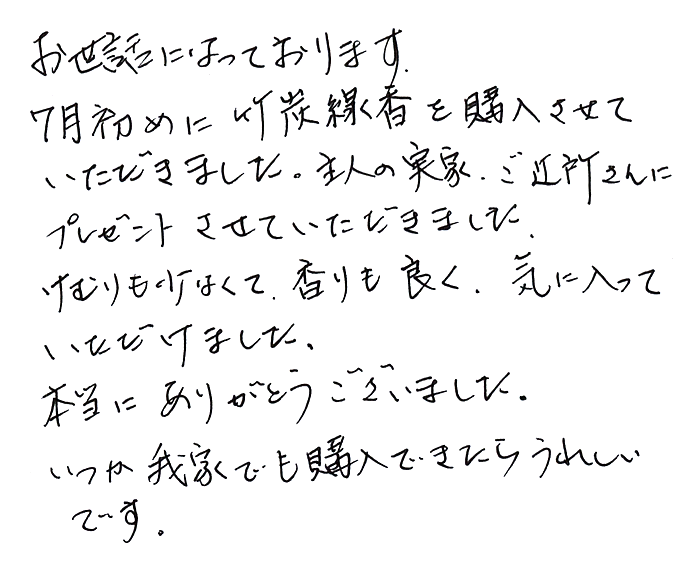 お世話になっております.
7月初めに竹炭線香を購入させて
いただきました。主人の実家、ご近所さんに
プレゼントさせていただきました.
けむりも少なくて、香りも良く、気に入って
いただけました。
本当にありがとうございました。
いつか我家でも購入できたらうれしい
です。